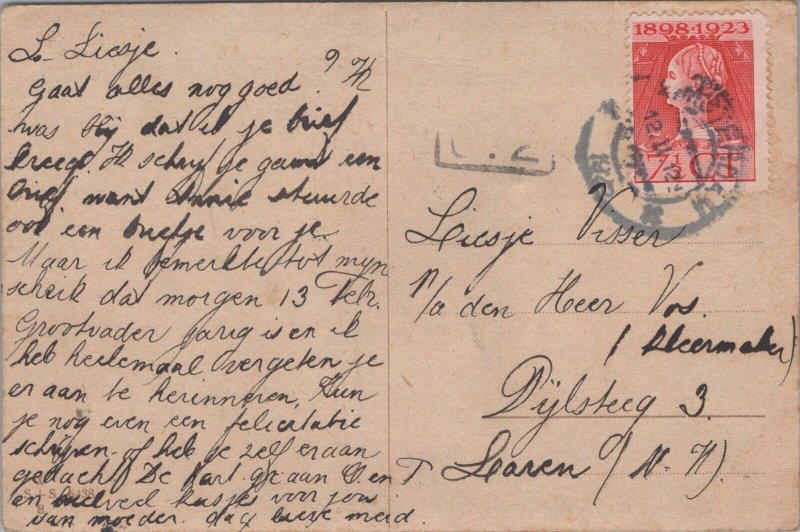 L. Liesje.
Gaat alles nog goed? Ik
was blij dat ik je brief
kreeg Ik schrijf je gauw een
brief want Annie stuurde
ook een briefje voor je.
Maar ik bemerkte tot mijn
schrik dat morgen 13 Febr.
Grootvader jarig is en ik
heb heelemaal vergeten je
er aan te herinneren. Kun
je nog even een felicitatie
schrijven of heb je zelf eraan
gedacht? De kart. gr. aan O. en T
en veel kusjes voor jou
van moeder. dag lieve meid
1898-1923
7½
Liesje Visser
p/a den Heer Vos.
(kleermaker)
Pijlsteeg 3.
Laren (N-H)